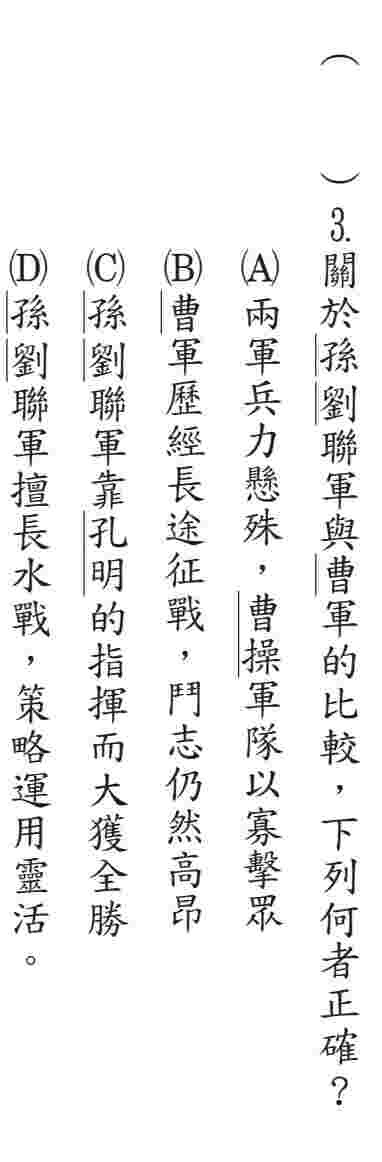 （　　）3.關於孫劉聯軍與曹軍的比較，下列何者正確？
(A)兩軍兵力懸殊，曹操軍隊以寡擊眾
(B)曹軍歷經長途征戰，鬥志仍然高昂
(C)孫劉聯軍靠孔明的指揮而大獲全勝
(D)孫劉聯軍擅長水戰，策略運用靈活。